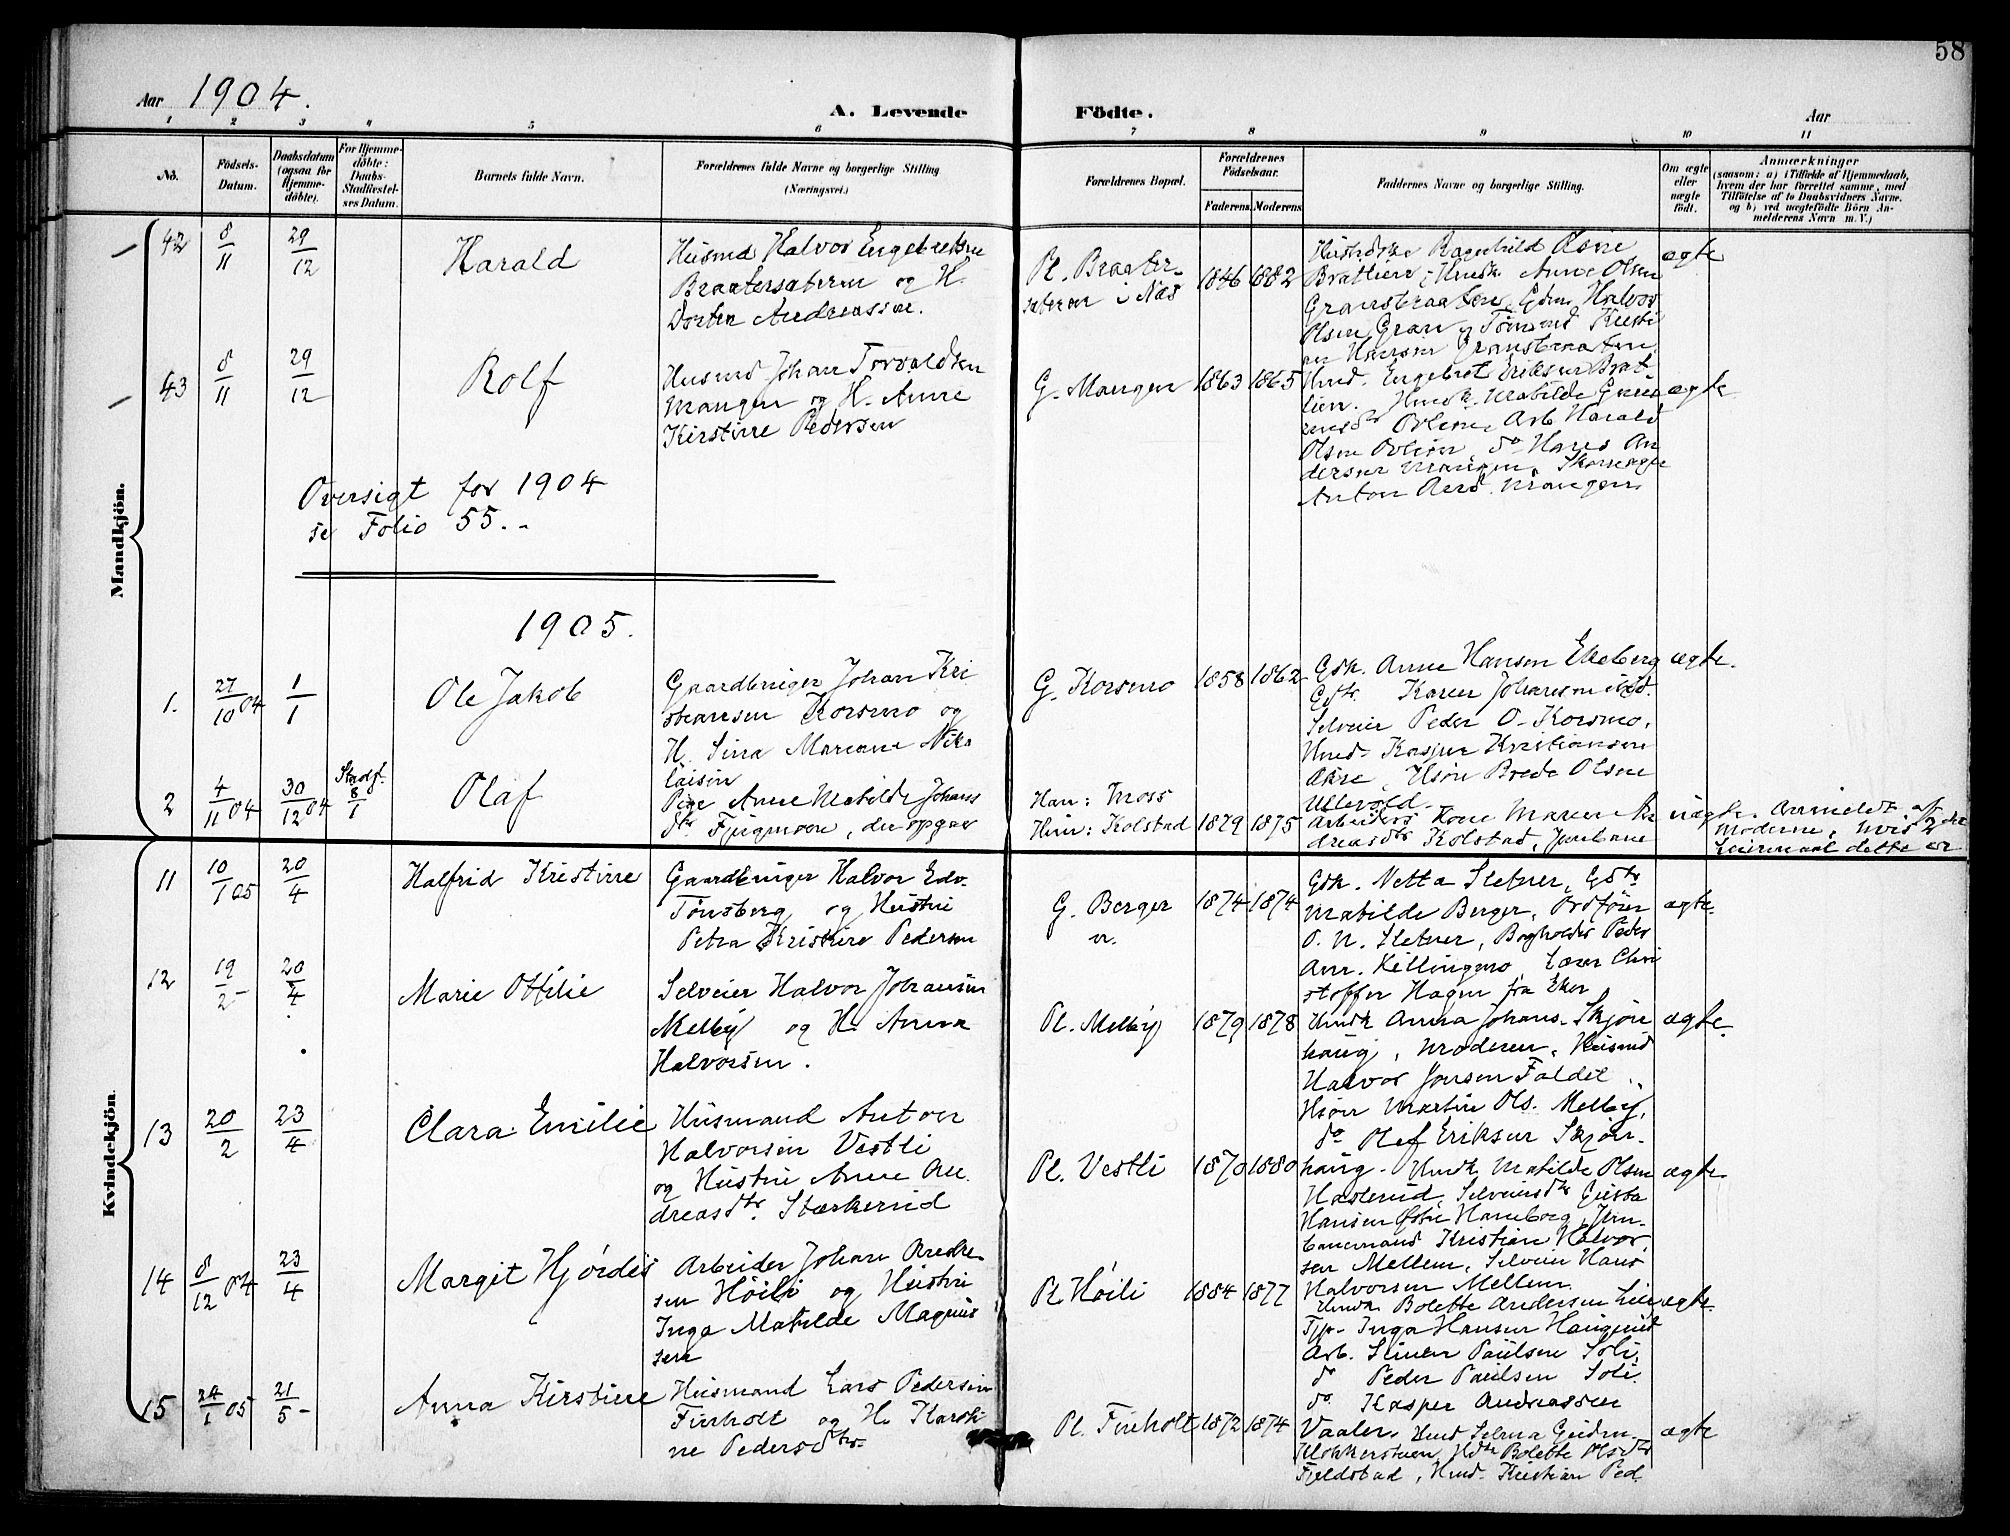 58
Aar 1904.
A. Levende Födte.
Aar
1 2 3 4 5 6 7 8 9 10 11
No.
Födsels-Datum.
Daabsdatum (ogsaa for Hjemme-döbte).
For Hjemme-döbte: Daabs-Stadfæstel-ses Datum.
Barnets fulde Navn.
Forældrenes fulde Navne og borgerlige Stilling
(Næringsvei.)
Forældrenes Bopæl.
Forældrenes Födselsaar.
Faderens Moderens
Faddernes Navne og borgerlige Stilling.
Om ægte eller uægte födt.
Anmærkninger
(saasom: a) i Tilfælde af Hjemmedaab, hvem der har forrettet samme, med Tilföielse af to Daabsvidners Navne. og b) ved uægtefödte Börn Anmelderens Navn m. V.)
Mandkjön.
42 8/11 29/12 Harald
Husmd Halvor Engebretsen
Braatersæteren og H.
Dortea Andreassen.
Pl. Braater-
sæteren i Næs
1846 1882
Brattlien, Hmdk. Anne Olsen
Gransbraaten, Gdm. Halvor
Olsen Gran, Tömmd Kristi
an Hansen Gransbraaten.
ægte
43 8/11 29/12 Rolf
Husmd Johan Torvaldsen
Mangen og H. Anne
Kirstine Pedersen
G. Mangen 1863 1865
Hmd. Engebret Eriksen Brat-
lien. Hmdk. Matilde
Arb Harald
Olsen do Hans An
dersen Mangen,
Anton And. Mangen.
ægte
Oversigt for 1904
se Folio 55.-
1905.
1. 27/10 04 1/1 Ole Jakob
Gaardbruger Johan Kri
stiansen Korsmo og
H. Lina Mariane Niko
laisen
G. Korsmo 1858 1862
Gdk. Anne Hansen Ekeberg
Karen Johansen
Selveier Peder O. Korsmo,
Hmd. Kasper Kristiansen
Brede Olsen
Ullevold.
ægte.
2 4/11 04 30/12 04 Stadf. 8/1 Olaf
Pige Anne Matilde Johans
dtr Fjugmoen, der opgav
Han: Moss
Hun: Kolstad 1879 1875
Arbeiders Kone Maren An
dreasdtr Kolstad, Jernbane
uægte. Anmeldt af
Moderne, hvis 2det
Leiermaal dette er
Kvindekjön.
11 10/1 05 20/4 Halfrid Kristine
Gaardbruger Halvor Edv.
Tönsberg og Hustru
Petra Kristine Pedersen
G. Berger
v.
1874 1874
Gdk. Netta Sletner, Gdtr
Matilde Berger, Ordförer
O. N. Sletner, Bogholder Peder
Anr. Killingmo, Lærer Chri
stoffer Hagen fra Eker
ægte.
12 19/2 - 20/4 Marie Otilie
Selveier Halvor Johansen
Melby og H. Anna
Halvorsen.
Pl. Melby 1879 1878
Hmdk Anna Johans. Skjön
haug, Moderen, Husmd
Halvor Jensen Faldet
Martin Ols. Melby,
do Olaf Eriksen Skjön-
haug.
ægte.
13 20/2 23/4 Clara Emilie
Husmand Anton
Halvorsen Vestli
og Hustru Anne An
dreasdtr. Stærkerud
Pl. Vestli 1870 1880
Hmdk. Matilde Olsen
Haslerud, Selveiersdtr
Hansen Østre Haneborg, Jern-
banemand Kristian Halvor
sen Mellem, Selveier Hans
Halvorsen Mellem.
ægte.
14 8/12 04 23/4 Margit Hjördis
Arbeider Johan Andrea
sen Höili og Hustru
Inga Matilde Magnus
sen
Pl. Höili 1884 1877
Hmdk. Bolette Andersen Lie
Tjp. Inga Hansen Haugerud
Arb. Simen Paulsen Soli,
do Peder Paulsen Soli.
do Kasper Andreassen
Vaaler.
ægte.
15 24/1 05 21/5 - Anna Kirstine
Husmand Lars Pedersen
Finholt og H. Karoli
ne Pedersdtr.
Pl. Finholt 1872 1874
Klokkerstuen, Hdtr Bolette Olsdtr
Fjeldstad, Hmd. Kristian Ped
ægte